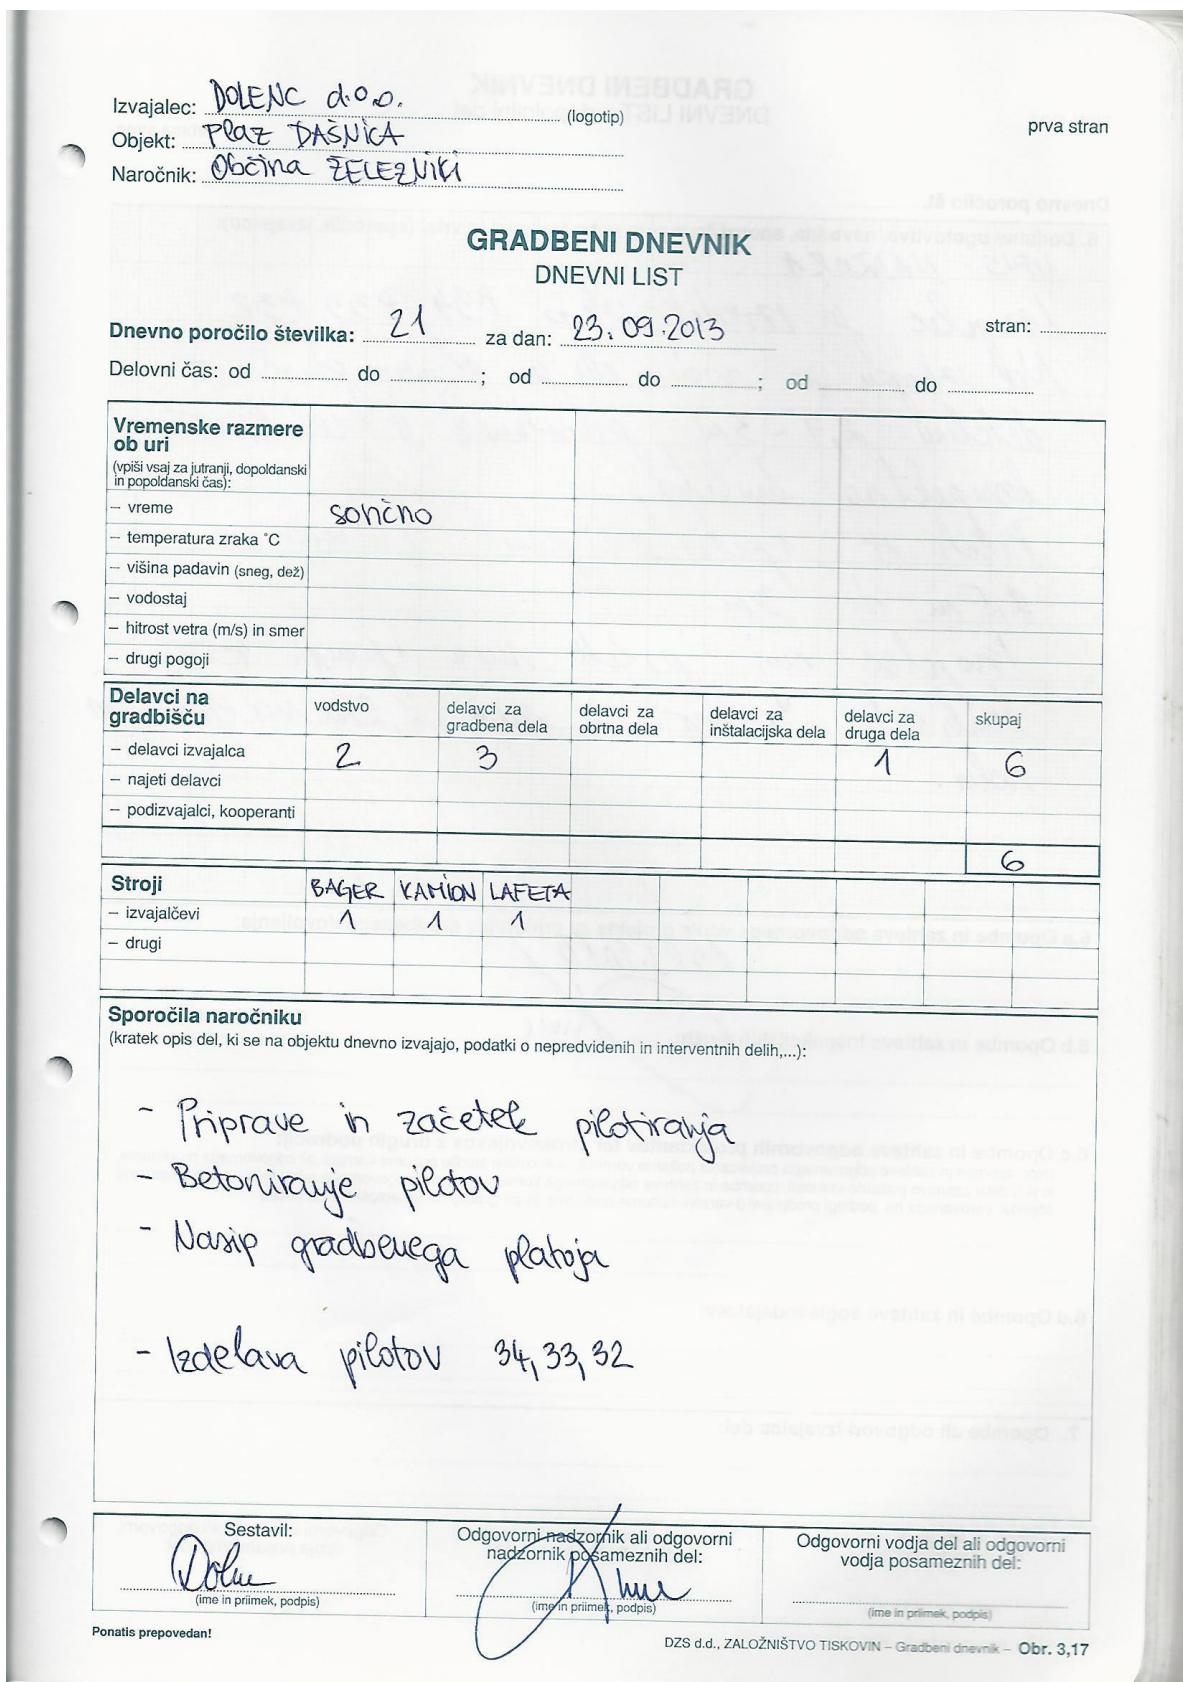 Izvajalec: DOLENC d.o.o. (logotip)
prva stran
Objekt: Plaz DAŠNICA
Naročnik: Občina ŽELEZNIKI
GRADBENI DNEVNIK
DNEVNI LIST
Dnevno poročilo številka: 21 za dan: 23.09.2013 stran:
Delovni čas: od do ; od do ; od do
Vremenske razmere
ob uri
(vpiši vsaj za jutranji, dopoldanski
in popoldanski čas):
– vreme sončno
– temperatura zraka °C
– višina padavin (sneg, dež)
– vodostaj
– hitrost vetra (m/s) in smer
– drugi pogoji
Delavci na gradbišču vodstvo delavci za gradbena dela delavci za obrtna dela delavci za inštalacijska dela delavci za druga dela skupaj
– delavci izvajalca 2 3 1 6
– najeti delavci
– podizvajalci, kooperanti
6
Stroji BAGER KAMION LAFETA
– izvajalčevi 1 1 1
– drugi
Sporočila naročniku
(kratek opis del, ki se na objektu dnevno izvajajo, podatki o nepredvidenih in interventnih delih,...):
- Priprave in začetek pilotiranja
- Betoniranje pilotov
- Nasip gradbenega platoja
- Izdelava pilotov 34, 33, 32
Sestavil:
(ime in priimek, podpis)
Odgovorni nadzornik ali odgovorni
nadzornik posameznih del:
(ime in priimek, podpis)
Odgovorni vodja del ali odgovorni
vodja posameznih del:
(ime in priimek, podpis)
Ponatis prepovedan!
DZS d.d., ZALOŽNIŠTVO TISKOVIN – Gradbeni dnevnik – Obr. 3,17